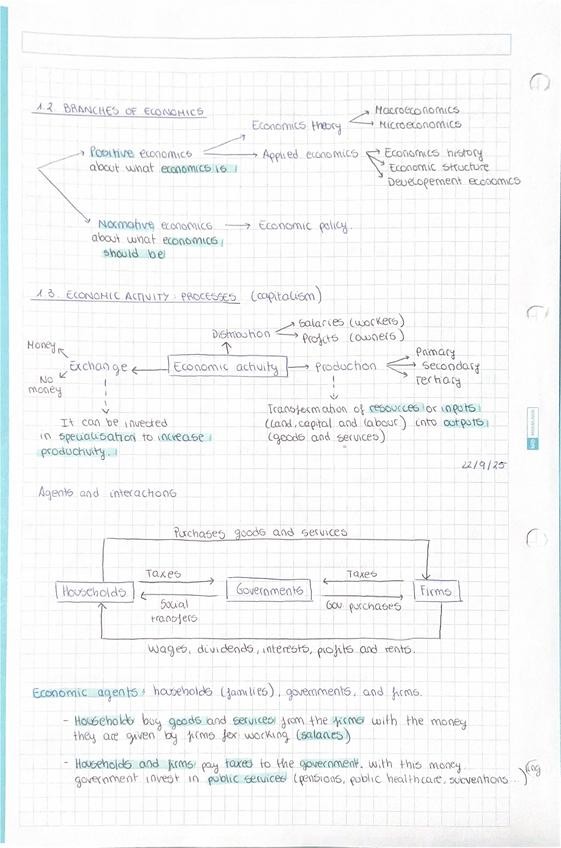 1.2. BRANCHES OF ECONOMICS
Macroeconomics
Economics theory
Microeconomics
Positive economics
about what economics is
Applied economics
Economics history
Economic structure
Developement economics
Normative economics
about what economics
should be
Economic policy.
1.3. ECONOMIC ACTIVITY: PROCESSES (capitalism)
Distribution
Salaries (workers)
Profits (owners)
Money
Exchange
No
money
Economic activity
Production
Primary
Secondary
Tertiary
It can be invected
in specialisation to increase
productivity.
Transformation of resources or inputs
(land, capital and labour) into outputs
(goods and services)
22/9/25
Agents and interactions
Purchases goods and services
Households
Taxes
Social
transfers
Governments
Taxes
Gov purchases
Firms
Wages, dividends, interests, profits and rents.
Economic agents: households (families), governments, and firms.
- Households buy goods and services from the firms with the money
they are given by firms for working (salaries)
- Households and firms pay taxes to the government. with this money
government invest in public services (pensions, public healthcare, subventions...)